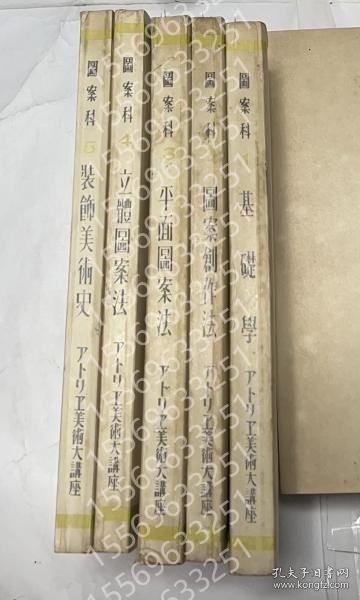 圖案科 1 基礎學 アトリヱ美術大講座
圖案科 圖案創作法 アトリヱ美術大講座
圖案科 3 平面圖案法 アトリヱ美術大講座
圖案科 4 立體圖案法 アトリヱ美術大講座
圖案科 5 裝飾美術史 アトリヱ美術大講座
15569633251
孔夫子旧书网